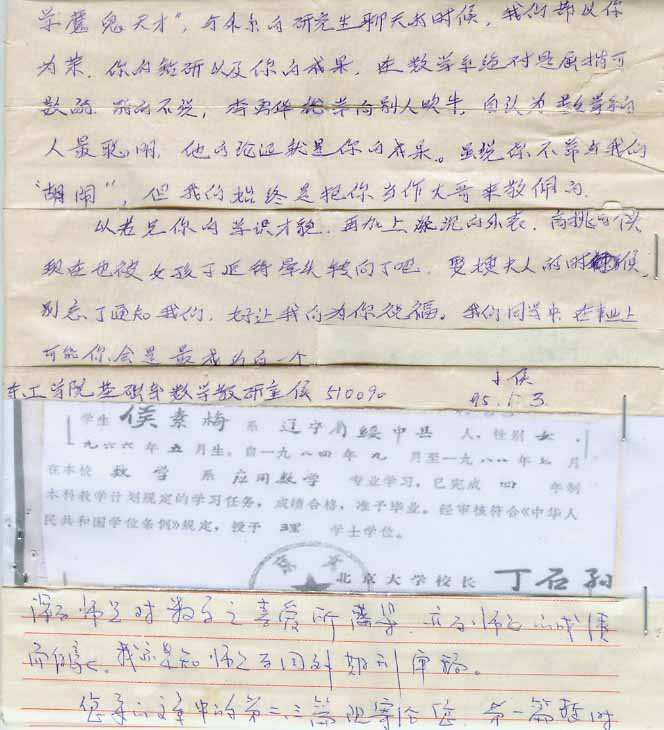 学魔鬼天才”，与外系的研究生聊天的时候，我们都以你
为荣，你的钻研以及你的成果，在数学系绝对是屈指可
数的，别的不说，李勇华就常向别人吹牛，自认为数学系的
人最聪明，他的论证就是你的成果。虽说你不常与我们
“胡闹”，但我们始终是把你当作大哥来敬佩的。
以若兄你的学识才貌，再加上 的外表，高挑的个头
现在也被女孩子追得晕头转向了吧，娶嫂夫人的时候，
别忘了通知我们，好让我们为你祝福。我们同学中，在事业上
可能你会是最成功的一个
东工学院基础系数学教研室侯 510090
小侯
95.1.3.
学生 侯素梅 系 辽宁省绥中县 人，性别 女，
九六六年五月生。自一九八四年九月至一九八八年七月
在本校 数学 系 应用数学 专业学习，已完成 四 年制
本科教学计划规定的学习任务，成绩合格，准予毕业。经审核符合《中华人
民共和国学位条例》规定，授予 理 学士学位。
北京大学校长 丁石孙
师兄对数学之喜爱所 ，亦为师兄的成绩
而 ，我亦是知师兄为国外期刊审稿。
您来的文章中的第二、三篇 寄给您，第一篇暂时